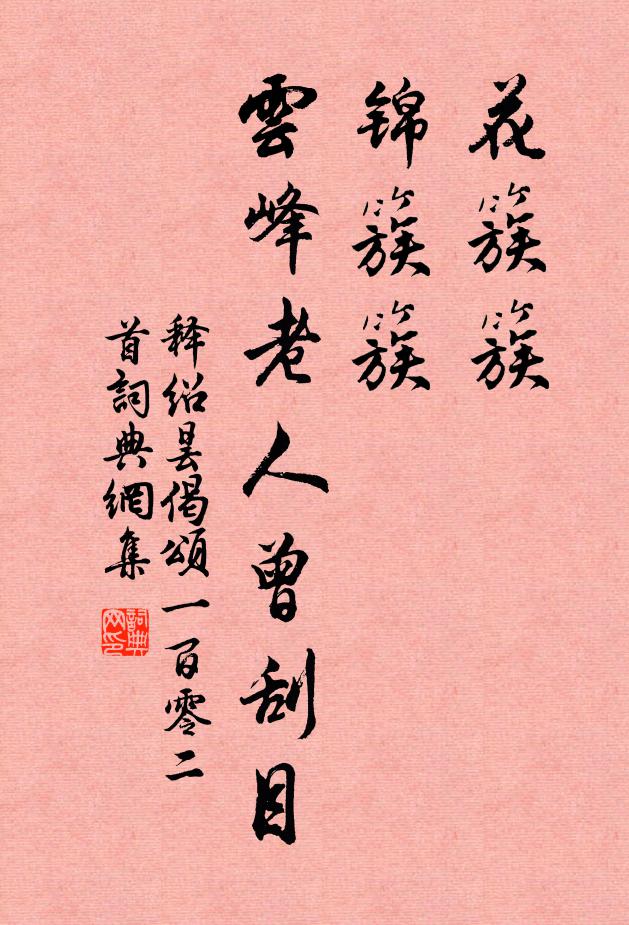 花簇簇
锦簇簇
雲峰老人曾刮目
释绍昙偈頌一百零二
首詞典網集
詞典
网印